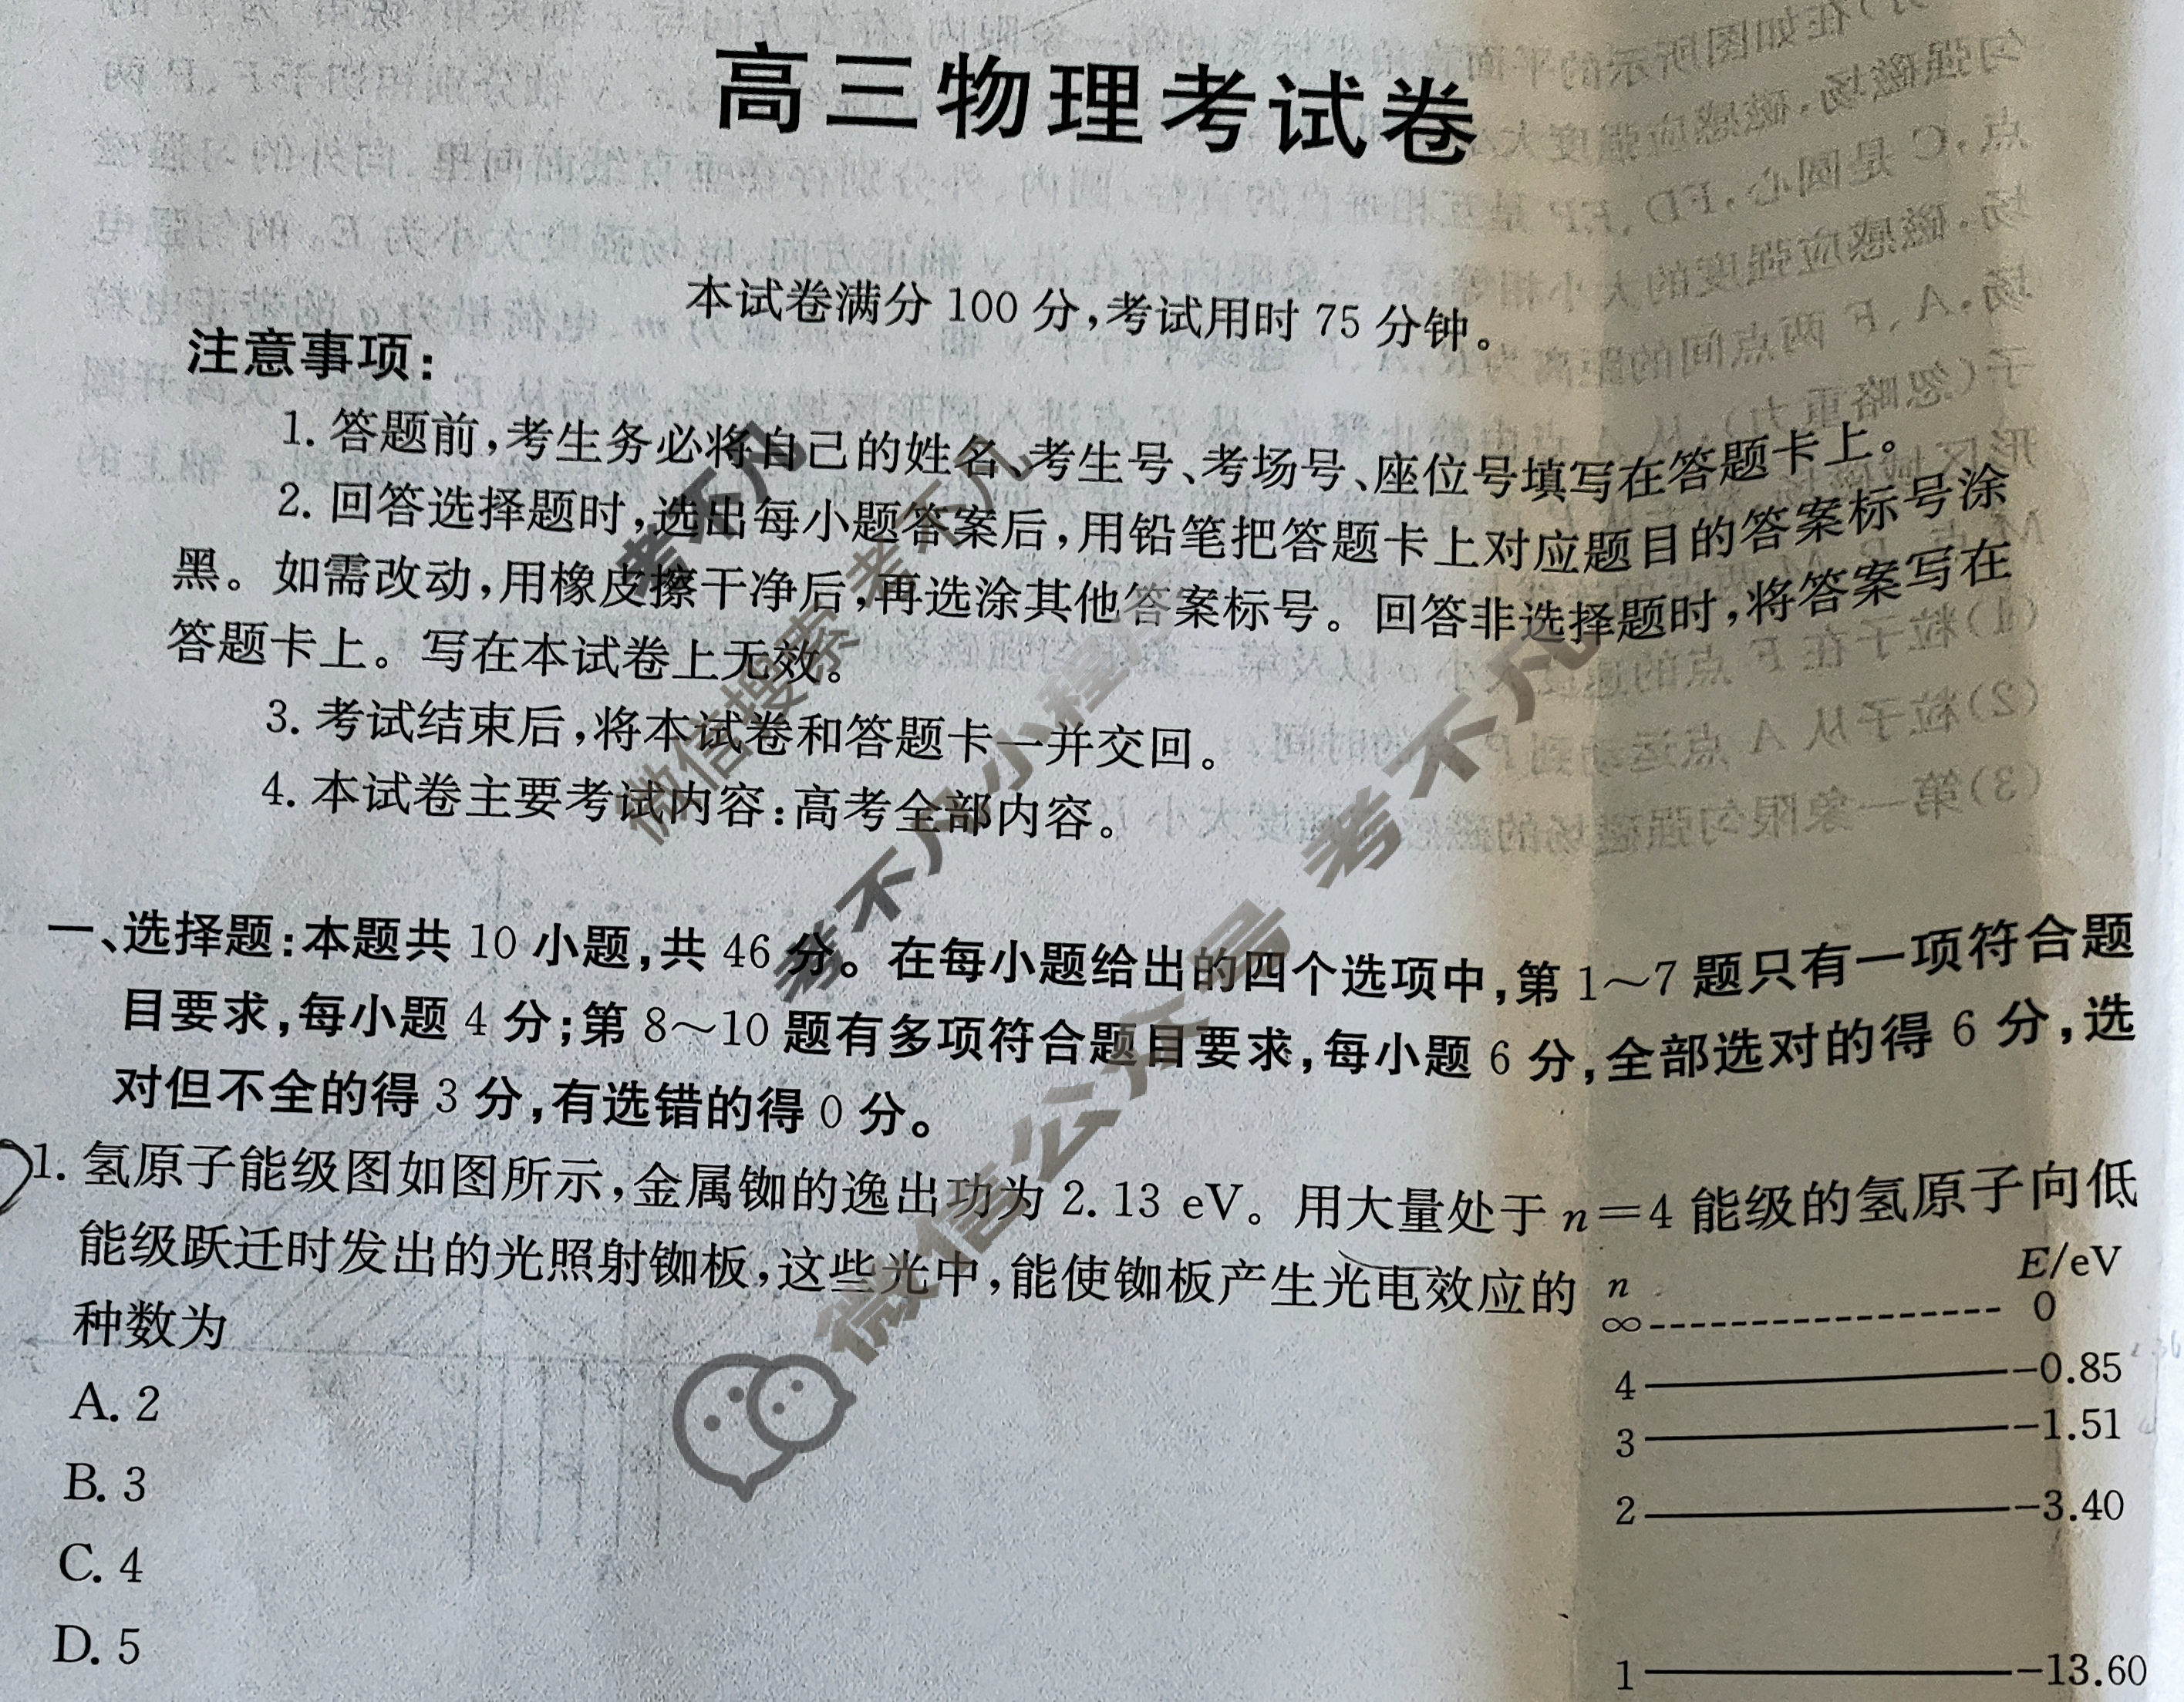 高三物理考试卷
本试卷满分 100 分,考试用时 75 分钟。
注意事项:
1. 答题前,考生务必将自己的姓名、考生号、考场号、座位号填写在答题卡上。
2. 回答选择题时,选出每小题答案后,用铅笔把答题卡上对应题目的答案标号涂
黑。如需改动,用橡皮擦干净后,再选涂其他答案标号。回答非选择题时,将答案写在
答题卡上。写在本试卷上无效。
3. 考试结束后,将本试卷和答题卡一并交回。
4. 本试卷主要考试内容:高考全部内容。
一、选择题:本题共 10 小题,共 46 分。在每小题给出的四个选项中,第 1~7 题只有一项符合题
目要求,每小题 4 分;第 8~10 题有多项符合题目要求,每小题 6 分,全部选对的得 6 分,选
对但不全的得 3 分,有选错的得 0 分。
1. 氢原子能级图如图所示,金属铷的逸出功为 2.13 eV。用大量处于 n=4 能级的氢原子向低
能级跃迁时发出的光照射铷板,这些光中,能使铷板产生光电效应的
种数为
A. 2
B. 3
C. 4
D. 5
n E/eV
∞ 0
4 -0.85
3 -1.51
2 -3.40
1 -13.60
考不凡
微信搜索 考不凡
考不凡小程序
微信公众号 考不凡